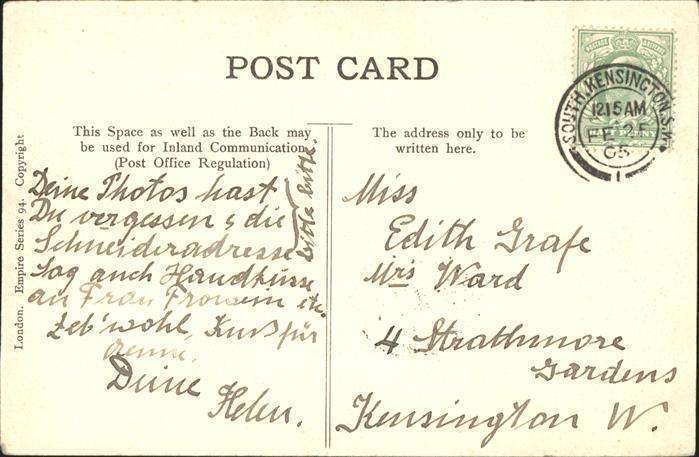 POST CARD
POSTAGE
SOUTH KENSINGTON S.W.
12.15 AM
FE 21
05
1
This Space as well as the Back may
be used for Inland Communication.
(Post Office Regulation)
The address only to be
written here.
London. Empire Series 94. Copyright
Deine Photos hast
Du vergessen & die
Schneideradresse
bitte bitte.
Sag auch Handküsse
an Frau
Leb' wohl, Kuß für
Deine
Helen.
Miss
Edith Grafe
Mrs Ward
4 Strathmore
Gardens
Kensington W.